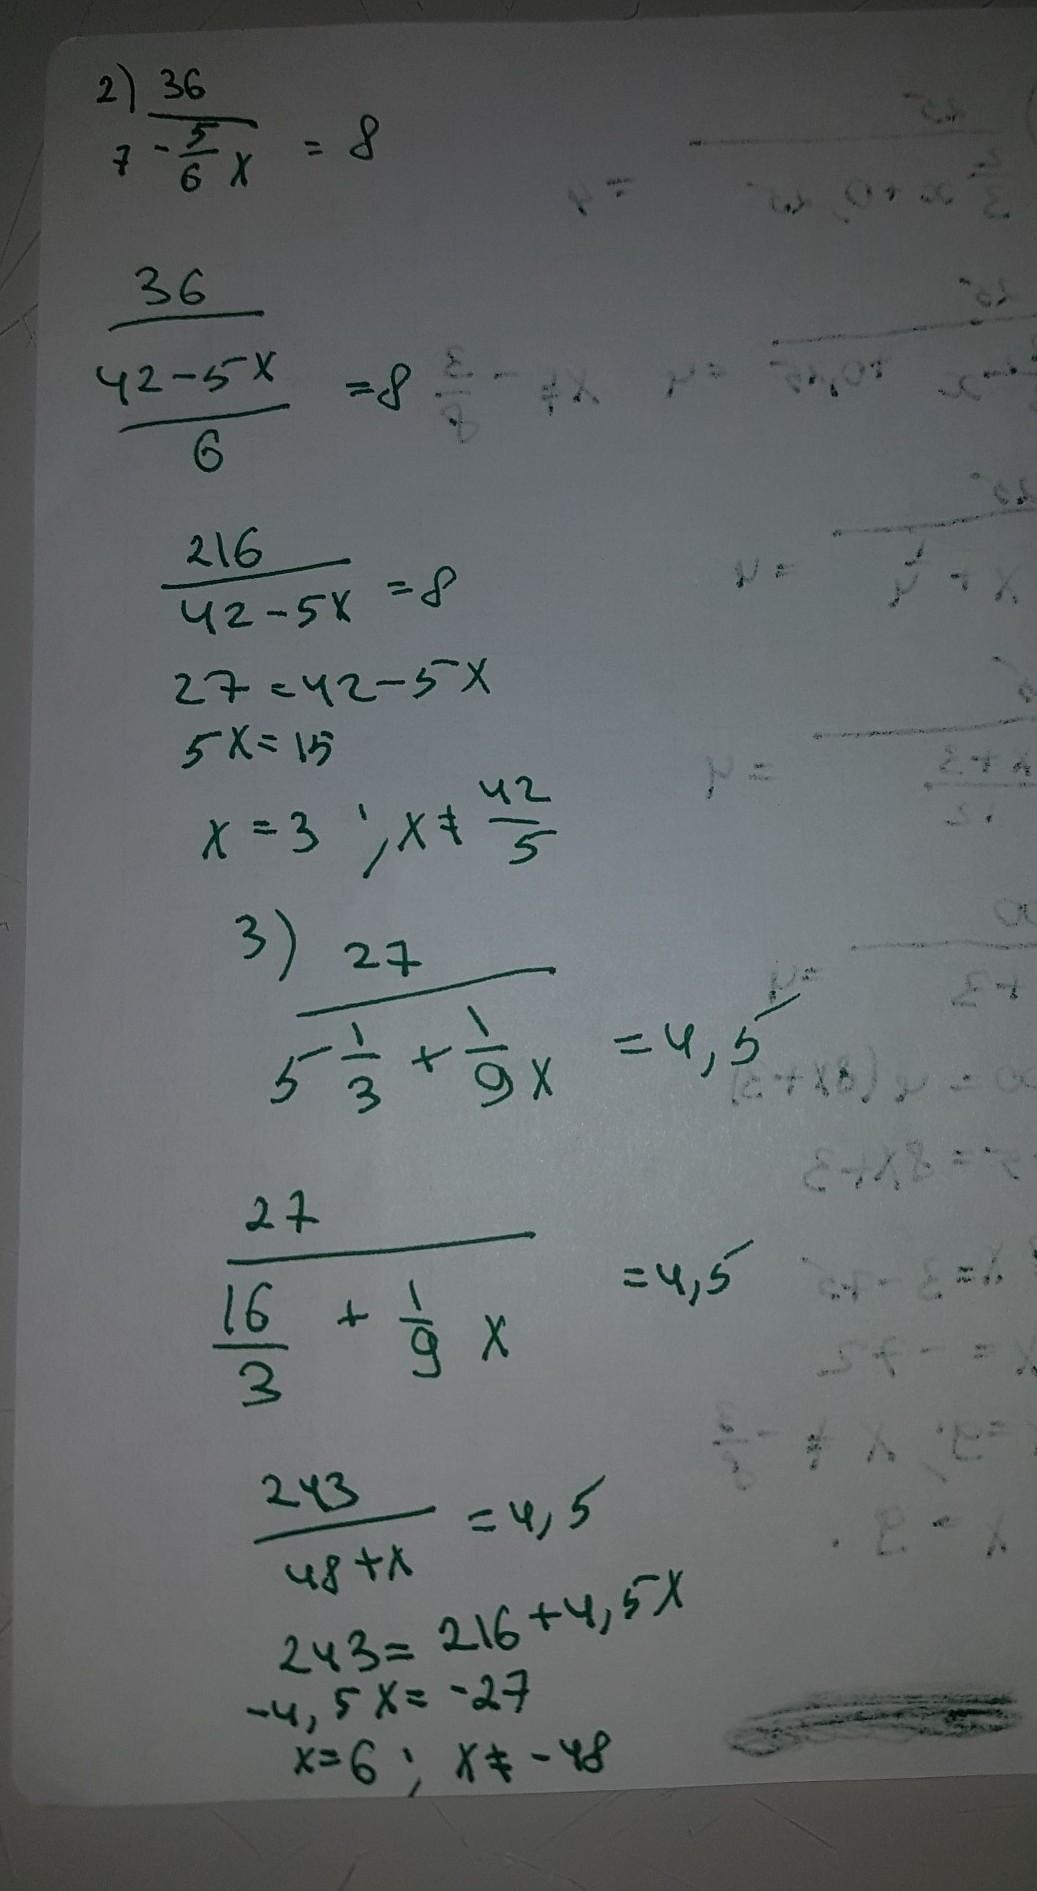 2) 36 / (7 - 5/6 x) = 8
36 / ((42-5x) / 6) = 8
216 / (42-5x) = 8
27 = 42-5x
5x = 15
x = 3 ; x ≠ 42/5
3) 27 / (5 1/3 + 1/9 x) = 4,5
27 / (16/3 + 1/9 x) = 4,5
243 / (48+x) = 4,5
243 = 216+4,5x
-4,5x = -27
x=6 ; x ≠ -48